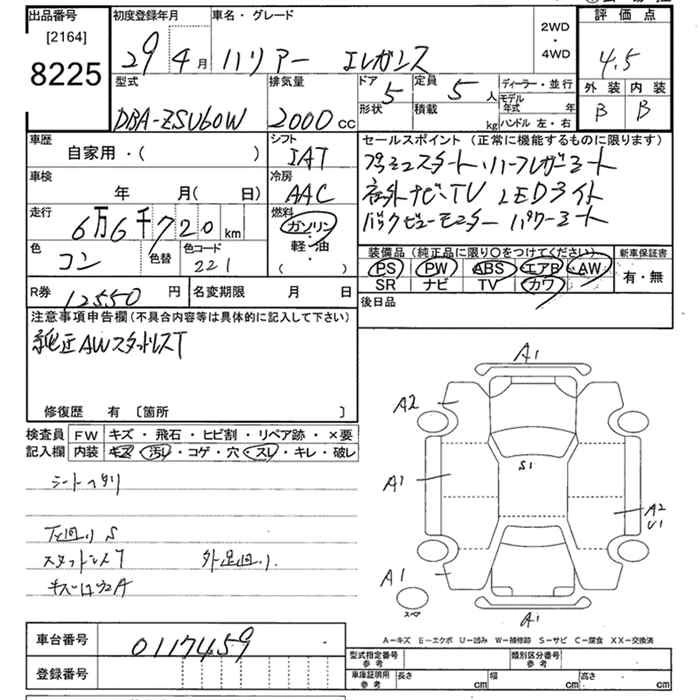 出品番号 初度登録年月 車名・グレード 2WD・4WD 評価点
[2164]
8225 29年4月 ハリアー エレガンス 4.5
型式 排気量 ドア 5 定員 5人 ディーラー・並行 外装 内装
DBA-ZSU60W 2000cc 形状 積載 kg モデル年式 年 B B
ハンドル 左・右
車歴 シフト セールスポイント (正常に機能するものに限ります)
自家用・( ) IAT プッシュスタート ハーフレザーシート
車検 冷房 社外ナビ・TV LEDライト
年 月( 日) AAC バックビューモニター パワーシート
走行 燃料
6万6千720km ガソリン・軽・油・( )
色 色替 色コード 装備品 (純正品に限り○をつけてください) 新車保証書
コン 221 PS PW ABS エアB AW 有・無
SR ナビ TV カワ
R券 12550円 名変期限 月 日 後日品
注意事項申告欄(不具合内容等は具体的に記入して下さい)
純正AWスタッドレスT
修復歴 有 〔箇所 〕
検査員 FW キズ・飛石・ヒビ割・リペア跡・×要
記入欄 内装 キズ・汚レ・コゲ・穴・スレ・キレ・破レ
シートヘタリ
下廻りS
スタッドレスT 外足廻り
A1
A2
S1
A1
A2
U1
A1
スペア
A1
A-キズ E-エクボ U-凹み W-補修跡 S-サビ C-腐食 XX-交換済
車台番号 0117459
登録番号
型式指定番号 参考 類別区分番号 参考
車庫証明用 参考 長さ cm 幅 cm 高さ cm